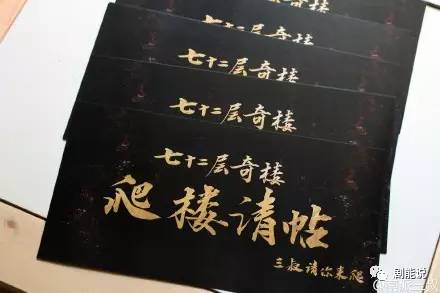 七十二层奇楼
七十二层奇楼
七十二层奇楼
七十二层奇楼
爬楼请帖
三叔请你来爬
剧能说